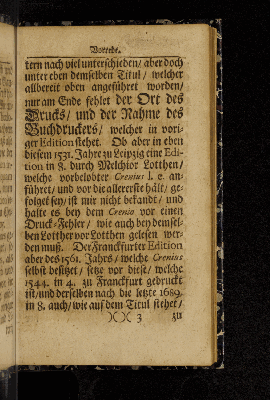 Vorrede.
tern nach viel unterschieden/ aber doch
unter eben demselben Titul/ welcher
allbereit oben angeführet worden/
nur am Ende fehlet der Ort des
Drucks/ und der Nahme des
Buchdruckers/ welcher in vori-
ger Edition stehet. Ob aber in eben
diesem 1531. Jahre zu Leipzig eine Edi-
tion in 8. durch Melchior Lotthen/
welche vorbelobter Crenius l. c. an-
führet/ und vor die allererste hält/ ge-
folget sey/ ist mir nicht bekandt/ und
halte es bey dem Crenio vor einen
Druck-Fehler/ wie auch bey demsel-
ben Lotther vor Lotthen gelesen wer-
den muß. Der Franckfurter Edition
aber des 1561. Jahrs/ welche Crenius
selbst besitzet/ setze vor diese/ welche
1544. in 4. zu Franckfurt gedruckt
ist/ und derselben nach die letzte 1689.
in 8. auch/ wie auf dem Titul stehet/
)( )( 3 zu